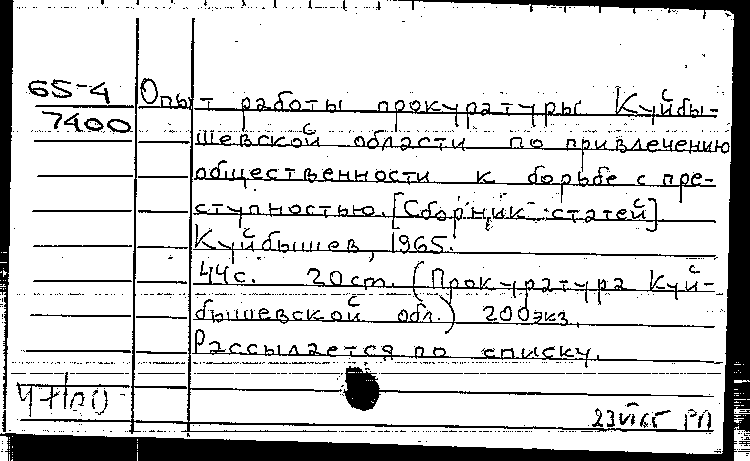 65-4 Опыт работы прокуратуры Куйбы-
7400 шевской области по привлечению
общественности к борьбе с пре-
ступностью. [Сборник статей].
Куйбышев, 1965.
44с. 20см. (Прокуратура Куй-
бышевской обл.) 200экз.
Рассылается по списку.
47/00
23VI65 РП